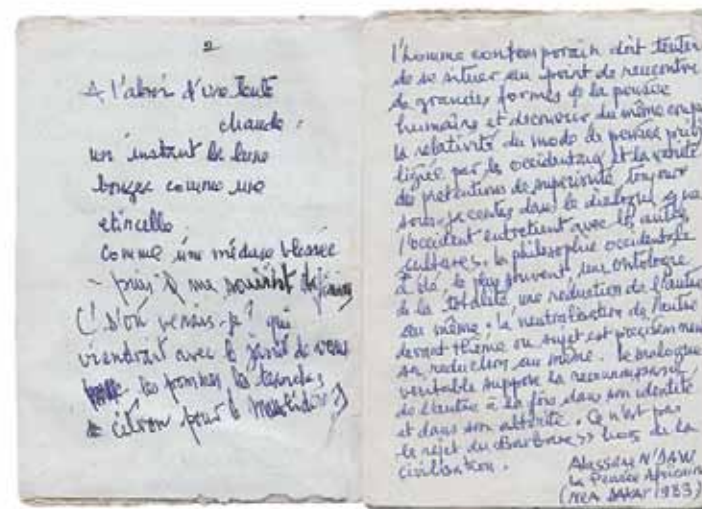 2
A l'abri d'une tente
chaude :
un instant la lune
bouge comme une
etincelle
comme une méduse blessée
- puis il me sourit
(D'où venais-je? qui
viendrait avec le
les pommes les
citron pour le
l'homme contemporain doit tenter
de se situer au point de rencontre
de grandes formes de la pensée
humaine et découvrir du même coup
la relativité du mode de pensée privi
légiée par les occidentaux et la vanité
des prétentions de supériorité toujours
sous-jacentes dans le dialogue que
l'occident entretient avec les autres
cultures. la philosophie occidentale
a été le plus souvent une ontologie
de la totalité une réduction de l'autre
au même. la neutralisation de l'autre
devant thème ou sujet est précisément
sa réduction au même. le dialogue
véritable suppose la reconnaissance
de l'autre à la fois dans son identité
et dans son altérité. Ce n'est pas
le rejet du Barbare >> hors de la
civilisation.
Alassane N'DAW
la Pensée Africaine
(NEA DAKAR 1983)